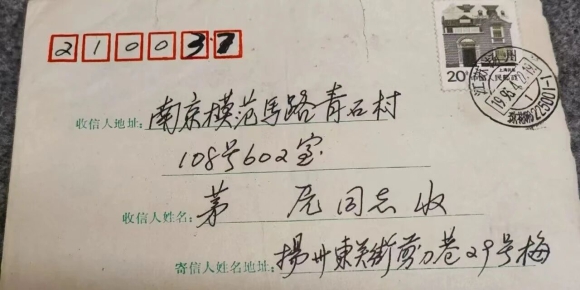 210037
20分
中国人民邮政
江苏扬州
1995.4.
225001-1
收信人地址: 南京模范马路青石村
108号602室
收信人姓名: 茅 同志收
寄信人姓名地址: 揚州東关街剪刀巷29号梅